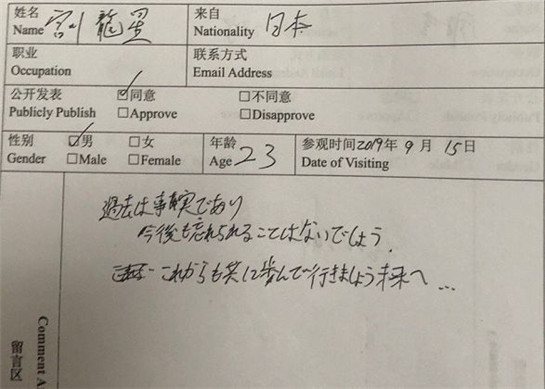 姓名 劉 龍星 来自
Name Nationality 日本
职业 联系方式
Occupation Email Address
公开发表 ☑同意 □不同意
Publicly Publish □Approve □Disapprove
性别 ☑男 □女 年龄 参观时间2019年9月15日
Gender □Male □Female Age 23 Date of Visiting
過去は事実であり
今後も忘れられることはないでしょう.
これからも共に歩んで行きましょう未来へ...
Comment A
留言区